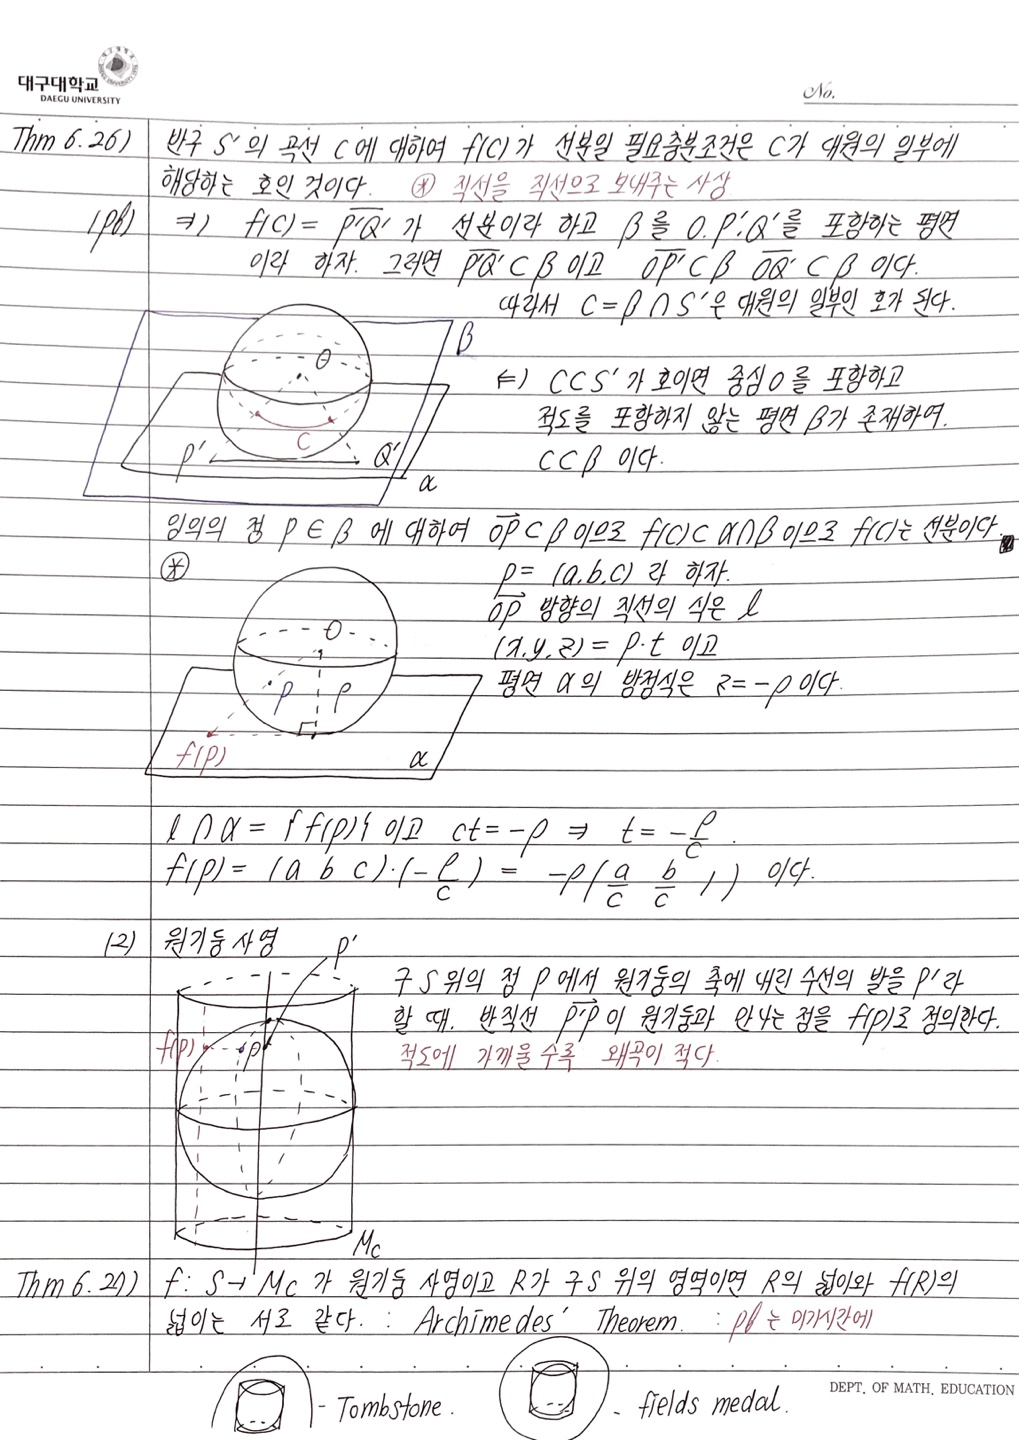 대구대학교
DAEGU UNIVERSITY
No.
Thm 6.26) 반구 S'의 곡선 C에 대하여 f(C)가 선분일 필요충분조건은 C가 대원의 일부에
해당하는 호인 것이다. ※ 직선을 직선으로 보내주는 사상
(pf) ⇒) f(C) = P'Q' 가 선분이라 하고 β를 O, P', Q'를 포함하는 평면
이라 하자. 그러면 P'Q' ⊂ β 이고 OP' ⊂ β OQ' ⊂ β 이다.
따라서 C = β ∩ S'은 대원의 일부인 호가 된다.
β
O
⇐) C ⊂ S'가 호이면 중심 O를 포함하고
적도를 포함하지 않는 평면 β가 존재하여.
C
P' Q'
C ⊂ β 이다.
α
임의의 점 P ∈ β 에 대하여 OP ⊂ β 이므로 f(C) ⊂ α∩β 이므로 f(C)는 선분이다.
※
P = (a, b, c) 라 하자.
OP 방향의 직선의 식은 l
O
(x, y, z) = P·t 이고
평면 α의 방정식은 z = -ρ 이다.
P ρ
f(P) α
l ∩ α = {f(P)} 이고 ct = -ρ ⇒ t = -ρ/c.
f(P) = (a b c)·(-ρ/c) = -ρ(a/c b/c 1) 이다.
(2) 원기둥 사영
P'
구 S 위의 점 P에서 원기둥의 축에 내린 수선의 발을 P'라
할 때. 반직선 P'P이 원기둥과 만나는 점을 f(P)로 정의한다.
f(P) P
적도에 가까울 수록 왜곡이 적다.
Mc
Thm 6.27) f: S → Mc 가 원기둥 사영이고 R가 구S 위의 영역이면 R의 넓이와 f(R)의
넓이는 서로 같다. : Archimedes' Theorem. : pf는 미기시간에
DEPT. OF MATH. EDUCATION
- Tombstone. - fields medal.